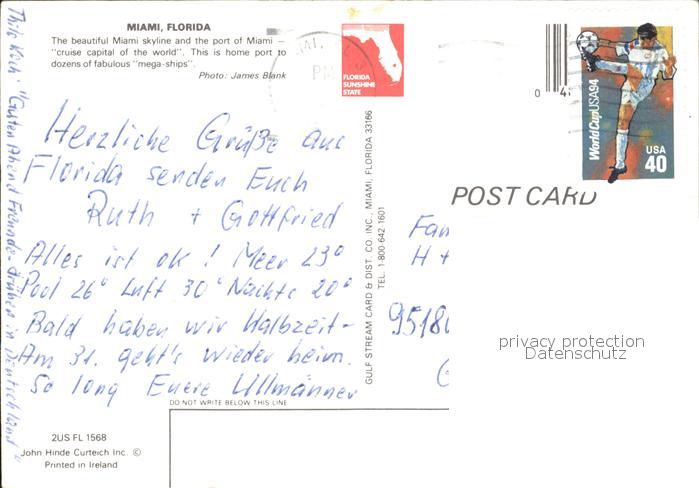 MIAMI, FLORIDA
The beautiful Miami skyline and the port of Miami —
"cruise capital of the world". This is home port to
dozens of fabulous "mega-ships".
Photo: James Blank
FLORIDA
SUNSHINE
STATE
PM
0
World Cup USA94
USA
40
POST CARD
Herzliche Grüße aus
Florida senden Euch
Ruth + Gottfried
Alles ist ok! Meer 23°
Pool 26° Luft 30° Nachts 20°
Bald haben wir Halbzeit-
Am 31. geht's wieder heim.
So long Euere Ullmänner
"Guten Abend Freunde drüben in Deutschland"
GULF STREAM CARD & DIST. CO. INC., MIAMI, FLORIDA 33166
TEL. 1-800-642-1601
Fam
H +
9518
privacy protection
Datenschutz
DO NOT WRITE BELOW THIS LINE
2US FL 1568
John Hinde Curteich Inc. ©
Printed in Ireland